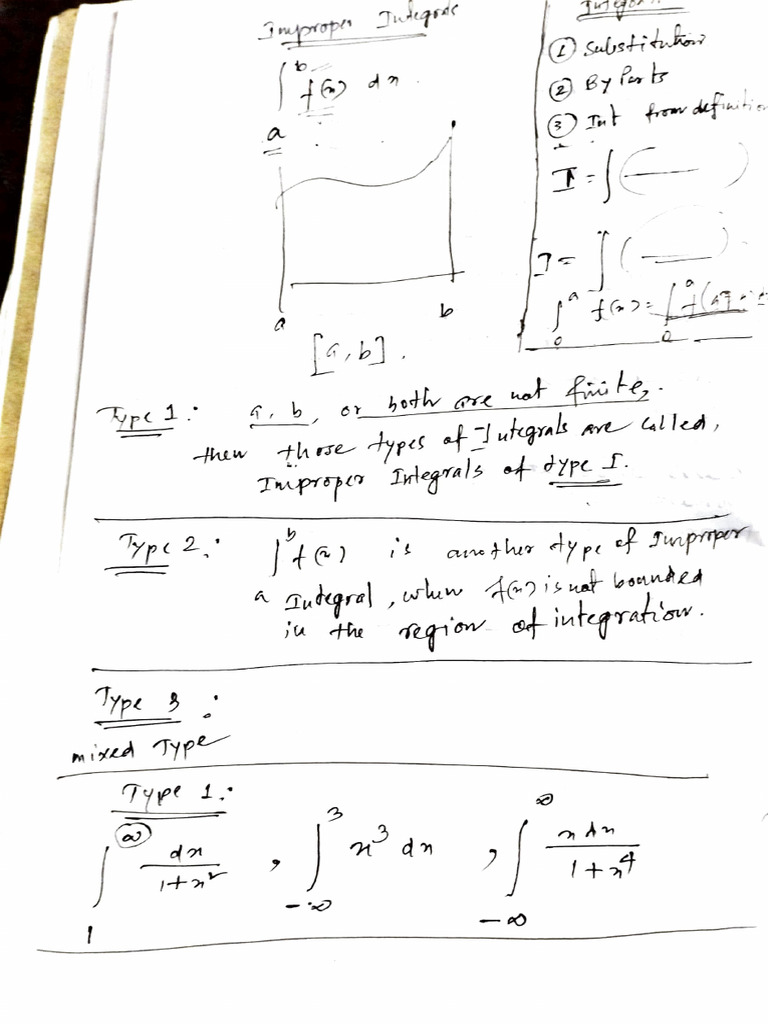 Improper Integrals
∫_a^b f(x) dx.
a
b
[a, b].
① Substitution
② By Parts
③ Int from definition
I = ∫(
I = ∫(
∫_0^a f(x) = ∫_0^a f(a
Type 1: a, b, or both are not finite,
then those types of Integrals are called,
Improper Integrals of type I.
Type 2: ∫_a^b f(x) is another type of Improper
Integral, when f(x) is not bounded
in the region of integration.
Type 3:
mixed Type
Type 1:
∫_1^∞ dx/(1+x²), ∫_{-∞}^3 x³ dx, ∫_{-∞}^∞ x dx/(1+x⁴)